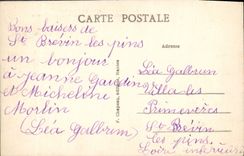 CARTE POSTALE
Bons baisers de
St Brévin les pins
un bonjour
à Jeanne Gaudin
et Micheline
Morlin
(Léa Galbrun
Adresse
Léa Galbrun
Villa les
Primevères
St Brévin
les pins
Loire inférieure